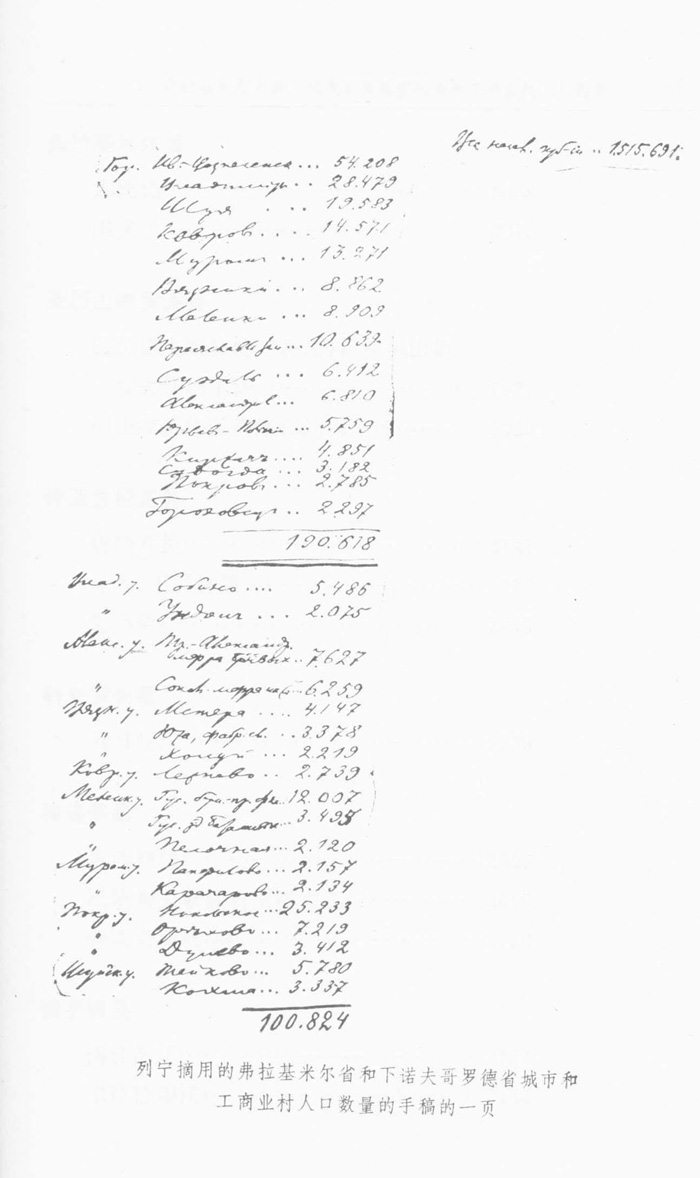 Все насел. губ-ии .. 1.515.691.
Гор. Ив.-Вознесенск ... 54.208
Владимир .. 28.479
Шуя . . . 19.583
Ковров .... 14.571
Муром ... 13.271
Вязники ... 8.862
Меленки ... 8.909
10.639
Суздаль ... 6.412
Александров ... 6.810
Юрьев- 5.759
Киржач .... 4.851
Судогда ... 3.182
Покров ... 2.785
Гороховец .. 2.297
190.618
Влад. у. Собино .... 5.486
" Ундол ... 2.075
Алекс. у. Александр.
7.627
" 6.259
Вязн. у. Мстера .... 4.147
" фабр. 3.378
" Холуй ... 2.219
Ковр. у. Лежнево .. 2.739
Меленк. у. Гус. 12.007
" Гус. 3.495
" 2.120
Муром. у. Панфилово .. 2.157
" Карачарово .. 2.134
Покр. у. Никольское ... 25.233
" Орехово ... 7.219
" Дулево ... 3.412
Шуйск. у. Тейково ... 5.780
Кохма ... 3.337
100.824
列宁摘用的弗拉基米尔省和下诺夫哥罗德省城市和
工商业村人口数量的手稿的一页